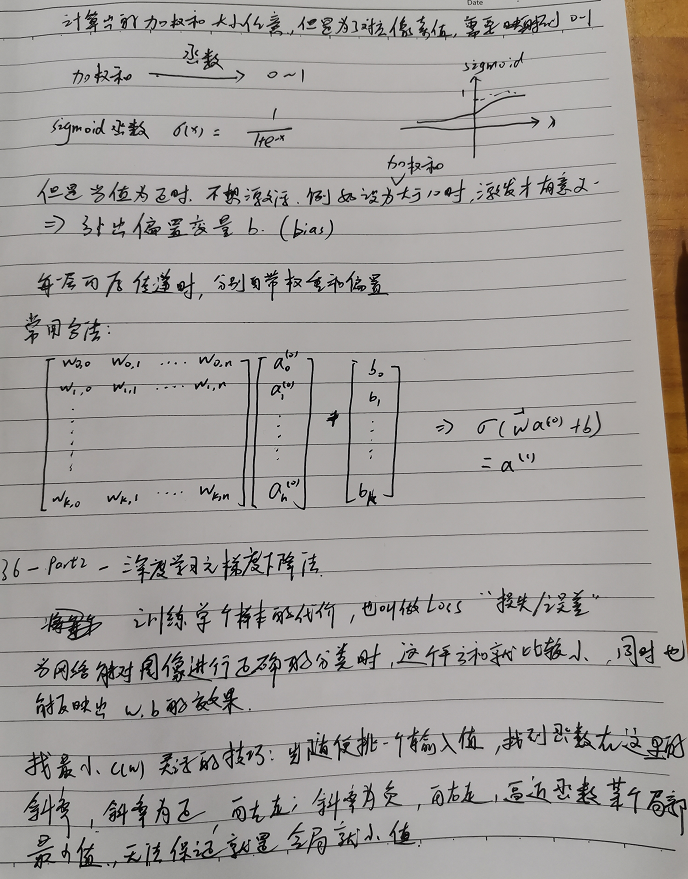 Date
计算出的加权和大小任意，但是为了对应像素值，需要映射到 0-1
加权和 函数 0~1
sigmoid
1
x
sigmoid 函数 σ(x) = 1/(1+e^-x)
加权和
但是当值为正时，不想激活，例如设为大于10时，激发才有意义.
⇒ 引出偏置变量 b. (bias)
每一层向后传递时，分别自带权重和偏置
常用方法:
w0,0 w0,1 .... w0,n a0^(0) b0
w1,0 w1,1 .... w1,n a1^(0) + b1 ⇒ σ(w⃗a^(0)+b)
= a^(1)
wk,0 wk,1 .... wk,n an^(0) bk
36 - Part2 - 深度学习之梯度下降法
训练单个样本的代价，也叫做Loss "损失/误差"
当网络能对图像进行正确的分类时，这个平方和就比较小，同时也
能反映出 w.b 的效果.
找最小 C(w) 灵活的技巧：当随便挑一个输入值，找到函数在这里的
斜率，斜率为正，向左走；斜率为负，向右走，逼近函数某个局部
最小值，无法保证就是全局最小值